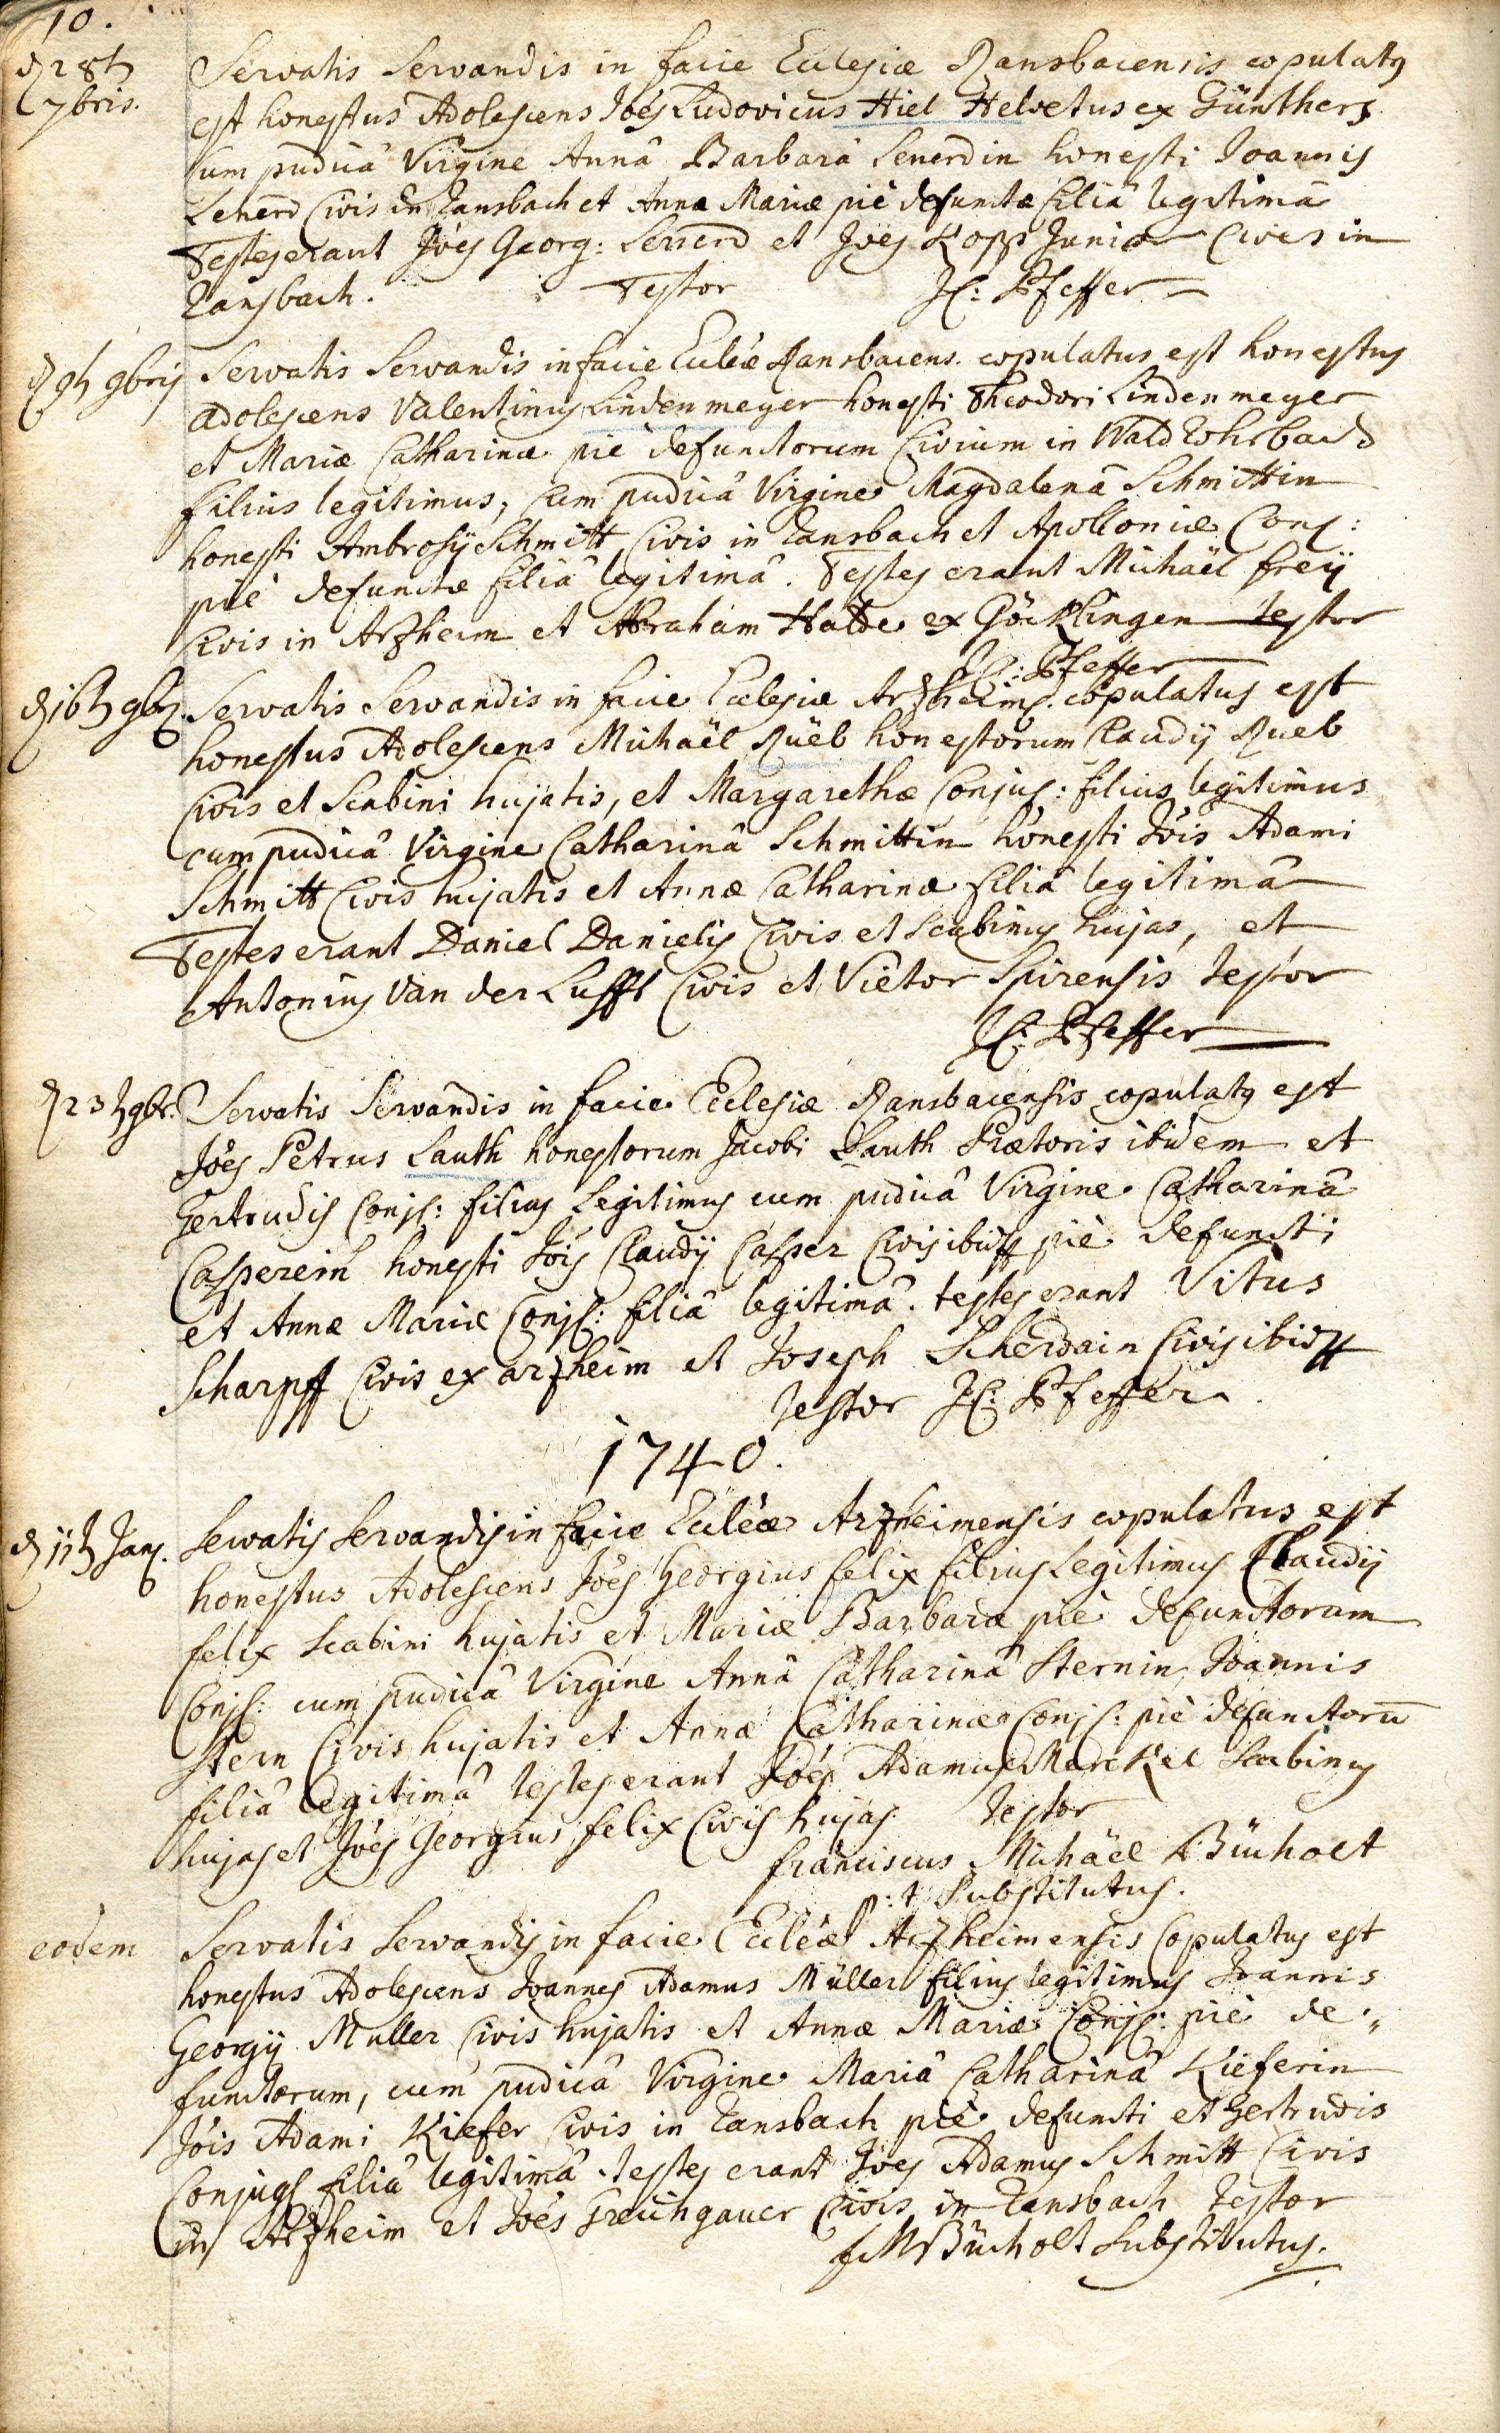 10.
d 28t
7bris.
Servatis Servandis in facie Ecclesiæ Ransbacensis copulatq
est honestus Adolescens Joës Ludovicus Hiel Helvetus ex Günthers
cum pudicâ Virgine Annâ Barbarâ Lenerdin honesti Joannis
Lenerd Civis in Ransbach et Annæ Mariæ piè defunctæ filiâ legitimâ
Testes erant Joës Georg: Lenerd et Joës Kopp Junior Cives in
Ransbach. Testor JC: Pfeffer
d 9t 9bris
Servatis Servandis in facie Eccleæ Ransbacens. copulatus est honestus
adolescens Valentinus Lindenmeyer honesti Theodori Lindenmeyer
et Mariæ Catharinæ piè defunctorum Civium in Waldrohrbach
filius legitimus, cum pudicâ Virgine Magdalenâ Schmittin
honesti Ambrosij Schmitt Civis in Ransbach et Apolloniæ Conj:
piè defunctæ filiâ legitimâ. Testes erant Michaël freÿ
Civis in Arzheim et Abraham Hatte ex Göcklingen Testor
JC: Pfeffer
d 16t 9br.
Servatis Servandis in facie Ecclesiæ Arzheims. copulatus est
honestus Adolescens Michaël Rüeb honestorum Claudij Rueb
Civis et Scabini hujatis, et Margarethæ Conjug: filius legitimus
cum pudicâ Virgine Catharinâ Schmittin honesti Jöis Adami
Schmitt Civis hujatis et Annæ Catharinæ filiâ legitimâ
Testes erant Daniel Danielis Civis et Scabinus hujas, et
Antonius Van der Lufft Civis et Viëtor Spirensis testor
JC: Pfeffer
d 23t 9br.
Servatis Servandis in facie Ecclesiæ Ransbacensis copulatq est
Joës Petrus Lauth honestorum Jacobi Lauth Prætoris ibidem et
Gertrudis Conj: filius Legitimus cum pudicâ Virgine Catharinâ
Casperein honesti Jöis Claudij Casper Civis ibid piè defuncti
et Annæ Mariæ Conj: filiâ legitimâ. testes erant Vitus
Scharpff Civis ex arzheim et Joseph Scherdain Civis ibid
Testor JC: Pfeffer
1740.
d 11t Jan.
Servatis Servandis in facie Eccleæ Arzheimensis copulatus est
honestus Adolescens Joës Georgius felix filius Legitimus Claudij
felix Scabini hujatis et Mariæ Barbaræ piè defunctorum
Conj: cum pudicâ Virgine Annâ Catharinâ Sternin Joannis
Stern Civis hujatis et Annæ Catharinæ Conj: piè defunctorū
filiâ legitimâ testes erant Joës Adamus Marckel Scabinus
hujas et Joës Georgius felix Civis hujas. Testor
franciscus Michäel Bücholt
p: t Substitutus.
eodem
Servatis Servandis in facie Eccleæ Arzheimensis Copulatus est
honestus Adolescens Joannes Adamus Müller filius legitimus Joannis
Georgij Muller Civis hujatis et Annæ Mariæ Conj: piè de„
functorum, cum pudicâ Virgine Mariâ Catharinâ Kieferin
Jöis Adami Kiefer Civis in Ransbach piè defuncti et Gertrudis
Conjug filiâ legitimâ. testes erant Joes Adamus Schmitt Civis
in Arzheim et Joës Greichgauer Civis in Ransbach Testor
f M Bücholt Substitutus.